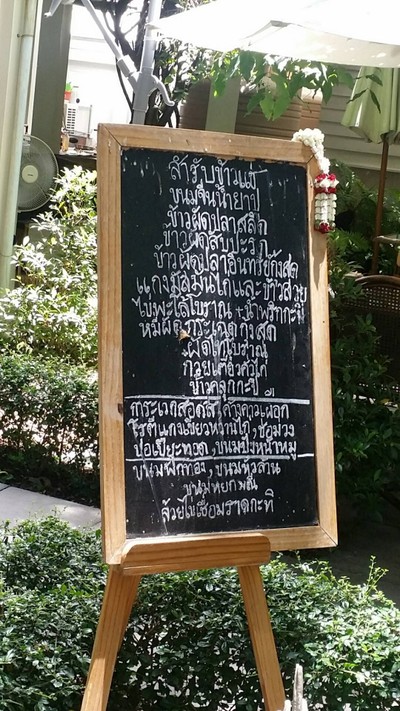 สำรับข้าวแช่
ขนมจีนน้ำยาปู
ข้าวผัดปลาสลิด
ข้าวผัดสับปะรด
ข้าวผัดปลาอินทรีย์กุ้งสด
แกงมัสมั่นไก่และข้าวสวย
ไข่พะโล้โบราณ
หมี่ผัดกระเฉดกุ้งสด
ผัดไทโบราณ
ก๋วยเตี๋ยวคั่วไก่
ข้าวคลุกกะปิ
ค้างคาวเผือก
โรตีแกงเขียวหวานไก่, ช่อม่วง
ปอเปี๊ยะทอด, ขนมปังหน้าหมู
ขนมฟักทอง, ขนมหัวล้าน
ขนมหยกมณี
กล้วยไข่เชื่อมราดกะทิ